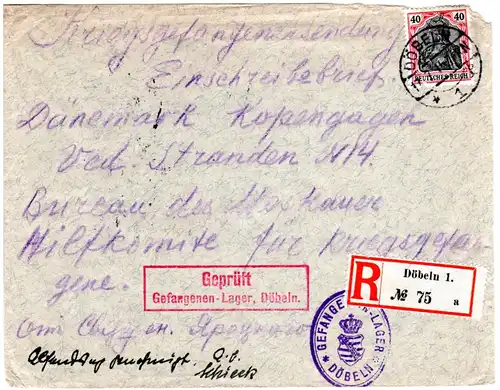 Kriegsgefangenensendung
40 40
DEUTSCHES REICH
DÖBELN
* 1
Einschreibebrief
Dänemark Kopengagen
Ved Stranden N14.
Bureau des Moskauer
Hilfkomite für Kriegsgefan-
gene.
Geprüft
Gefangenen-Lager, Döbeln.
R
Döbeln 1.
№ 75 a
GEFANGENEN-LAGER
* DÖBELN *
от
Schieck